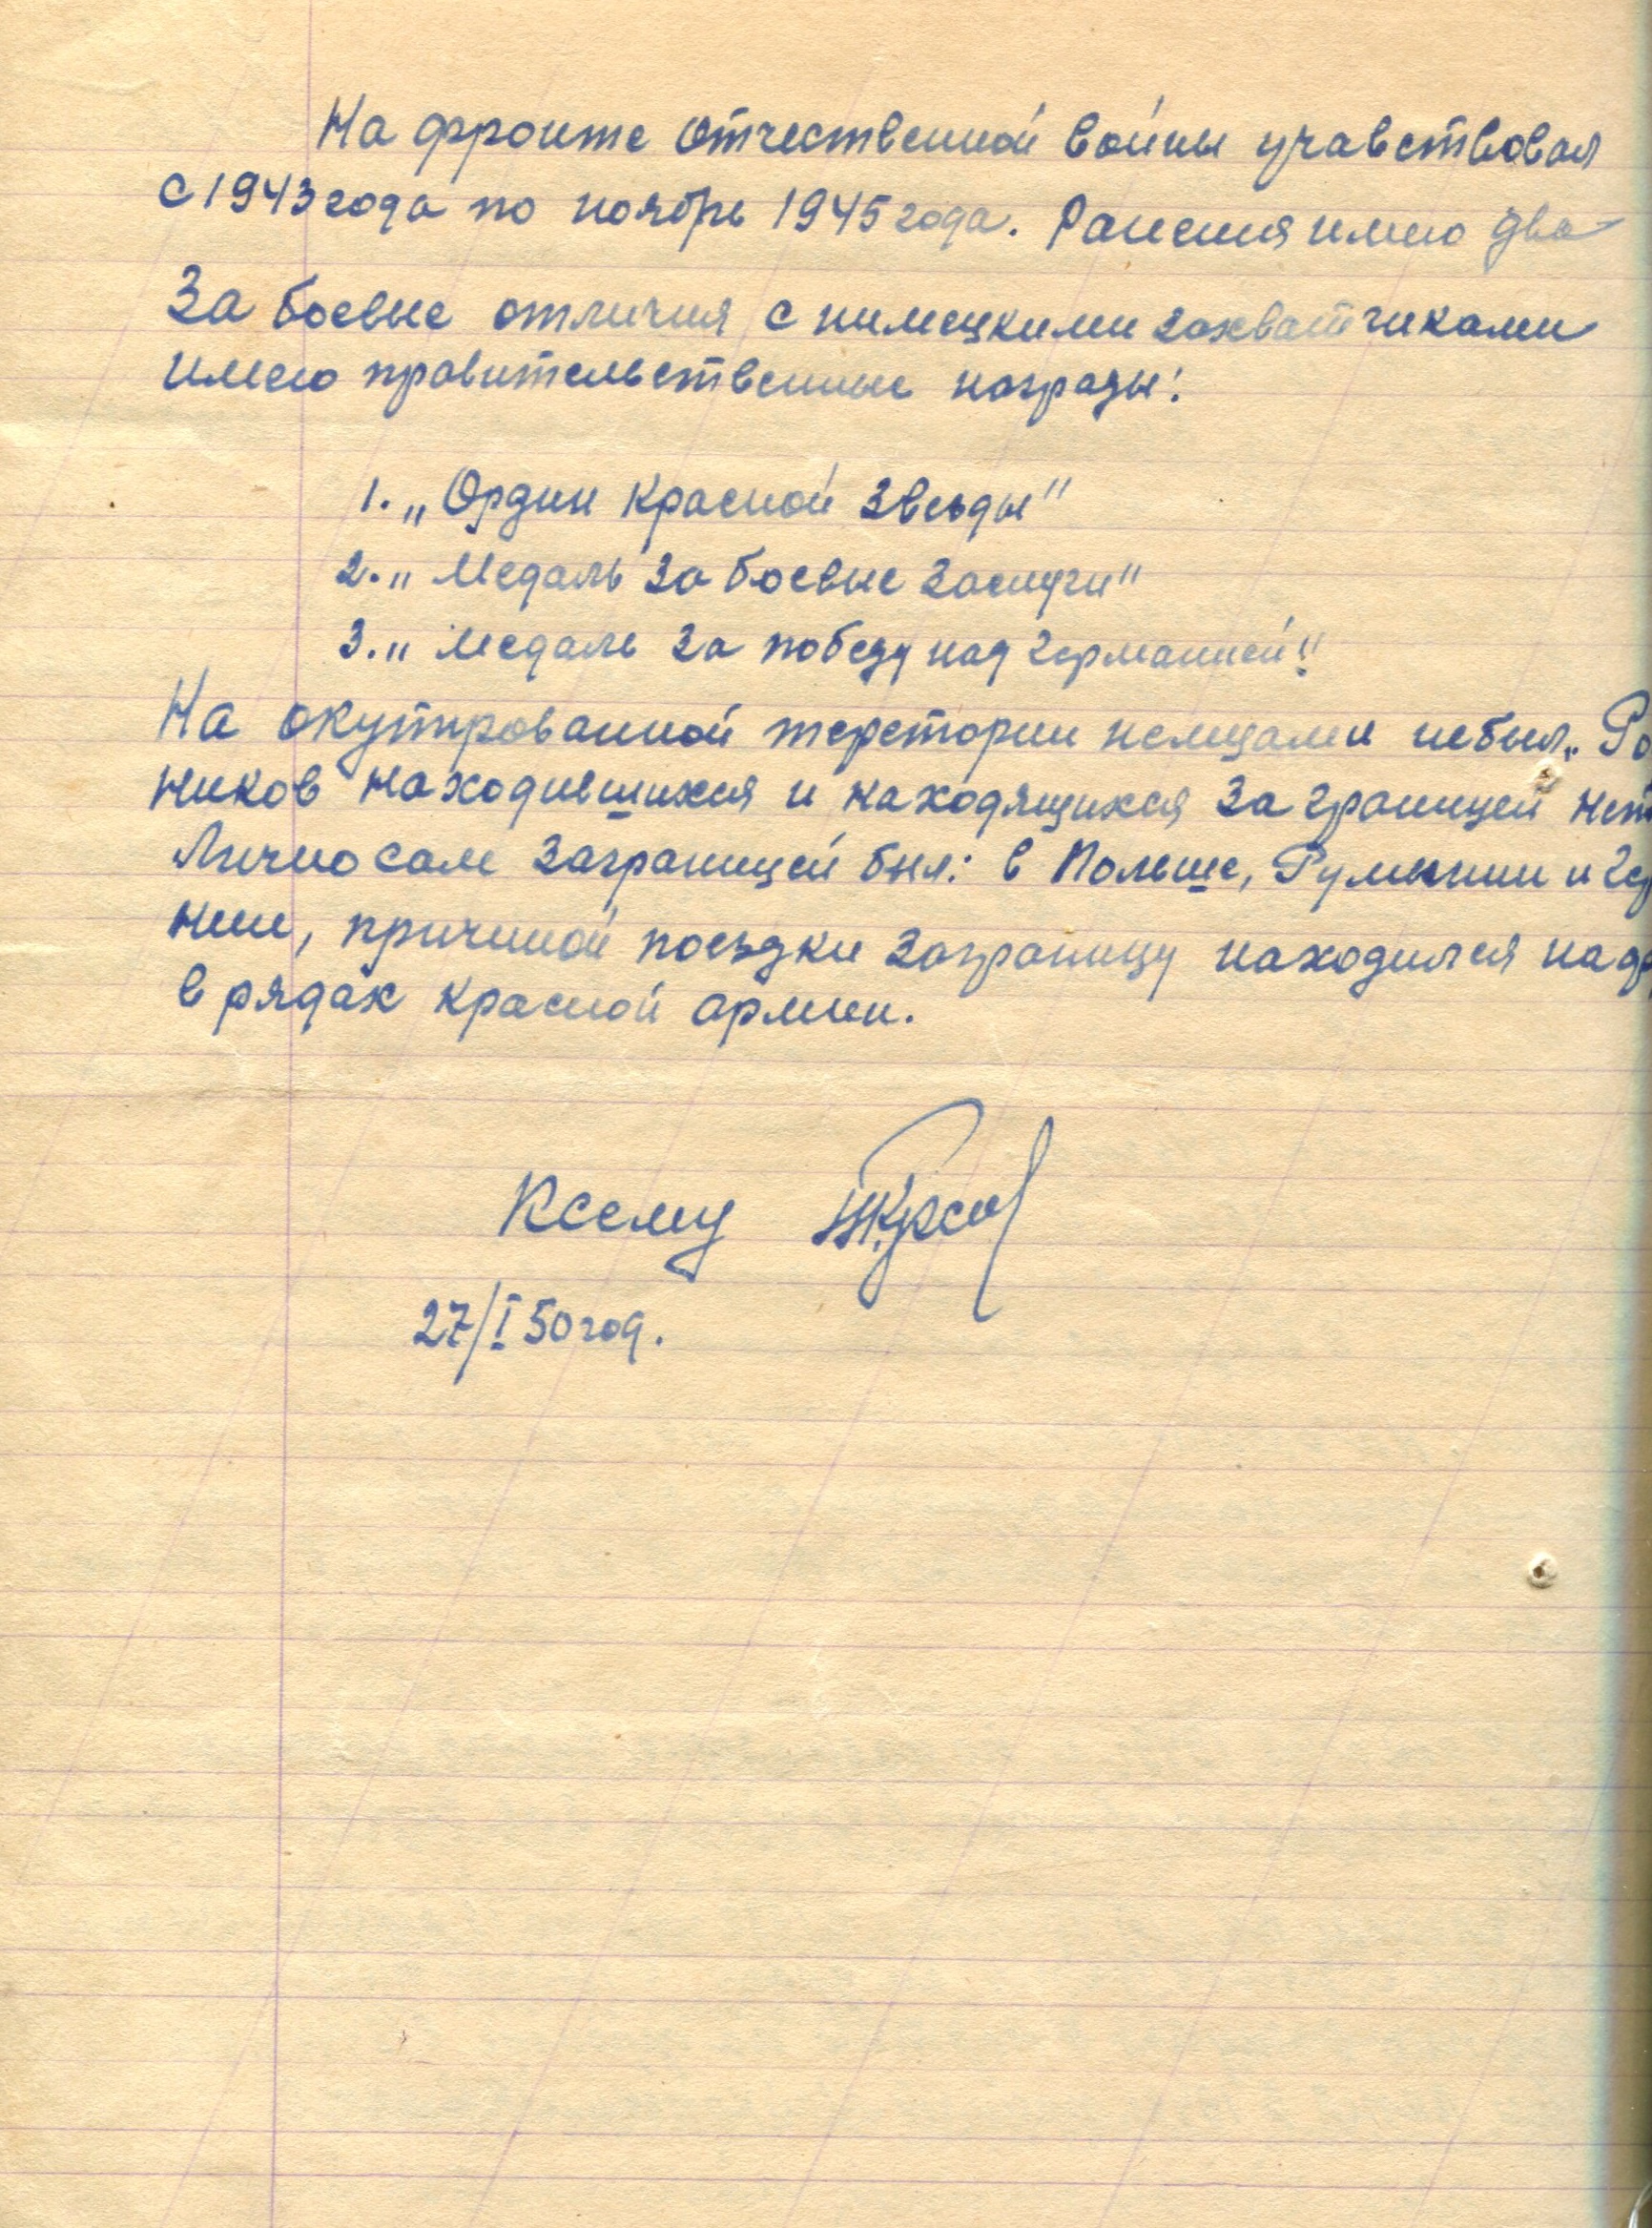 На фронте отчественной войны учавствовал
с 1943 года по ноябрь 1945 года. Ранения имею два
За боевые отличия с нимецкими захватчиками
имею правительственные награды:
1. „Ордин Красной Звезды"
2. „Медаль За боевые Заслуги"
3. „Медаль За победу над Германией"
На окупированной теретории немцами небыл. Ро
ников находившихся и находящихся За границей нет
Лично сам Заграницей был: в Польше, Румынии и Гер
нии, причиной поездки Заграницу находился на
в рядах Красной армии.
К сему
27/I 50 год.